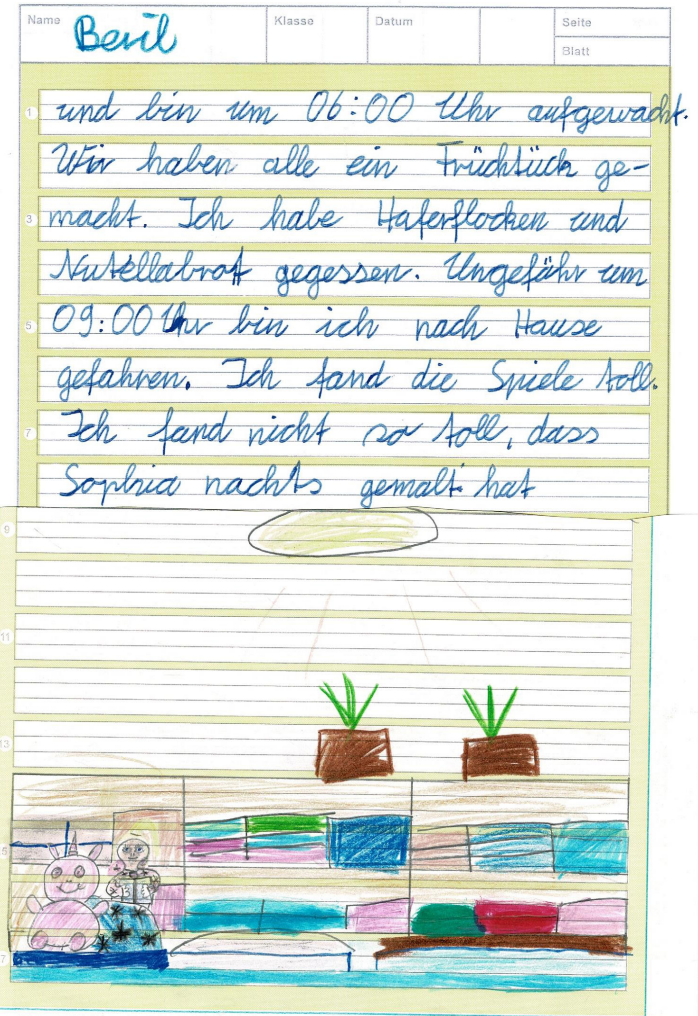 Name Beril Klasse Datum Seite
Blatt
1 und bin um 06:00 Uhr aufgewacht.
Wir haben alle ein Früchtück ge-
3 macht. Ich habe Haferflocken und
Nutellabrot gegessen. Ungefähr um
5 09:00 Uhr bin ich nach Hause
gefahren. Ich fand die Spiele toll.
7 Ich fand nicht so toll, dass
Sophia nachts gemalt hat
9
11
13
5
7